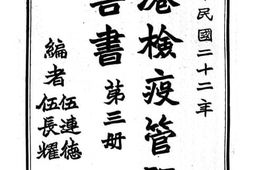 民國二十二年
港檢疫管
告書
第三册
編者
伍連德
伍長耀